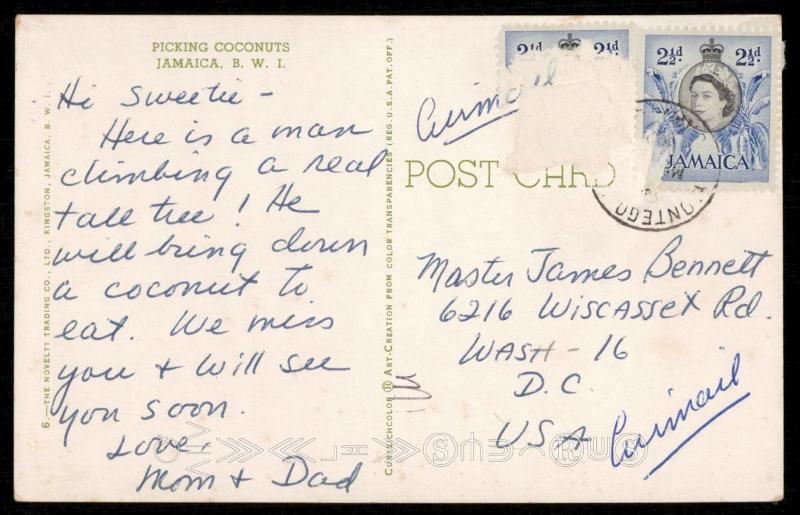 PICKING COCONUTS
JAMAICA, B. W. I.
Hi Sweetie -
Here is a man
climbing a real
tall tree! He
will bring down
a coconut to
eat. We miss
you + will see
you soon.
Love,
Mom + Dad
6.—THE NOVELTY TRADING CO., LTD., KINGSTON, JAMAICA, B. W. I.
CURTEICHCOLOR ® ART-CREATION FROM COLOR TRANSPARENCIES (REG. U.S.A. PAT. OFF.)
Airmail
2½d 2½d
2½d 2½d
JAMAICA
MONTEGO
POST CARD
Master James Bennett
6216 Wiscasset Rd.
WASH - 16
D.C.
USA
Airmail